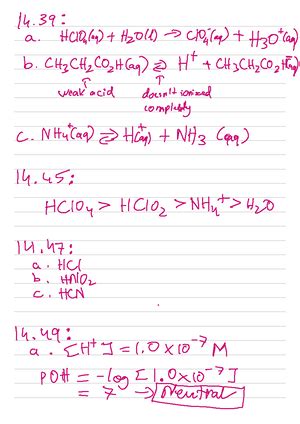 14.39:
a. HClO₄(aq) + H₂O(l) → ClO₄⁻(aq) + H₃O⁺(aq)
b. CH₃CH₂CO₂H(aq) ⇌ H⁺ + CH₃CH₂CO₂
weak acid doesn't ionized
completely
c. NH₄⁺(aq) ⇌ H⁺(aq) + NH₃ (aq)
14.45:
HClO₄ > HClO₂ > NH₄⁺ > H₂O
14.47:
a. HCl
b. HNO₂
c. HCN
14.49:
a. [H⁺] = 1.0 × 10⁻⁷ M
POH = -log [1.0×10⁻⁷]
= 7 → Neutral